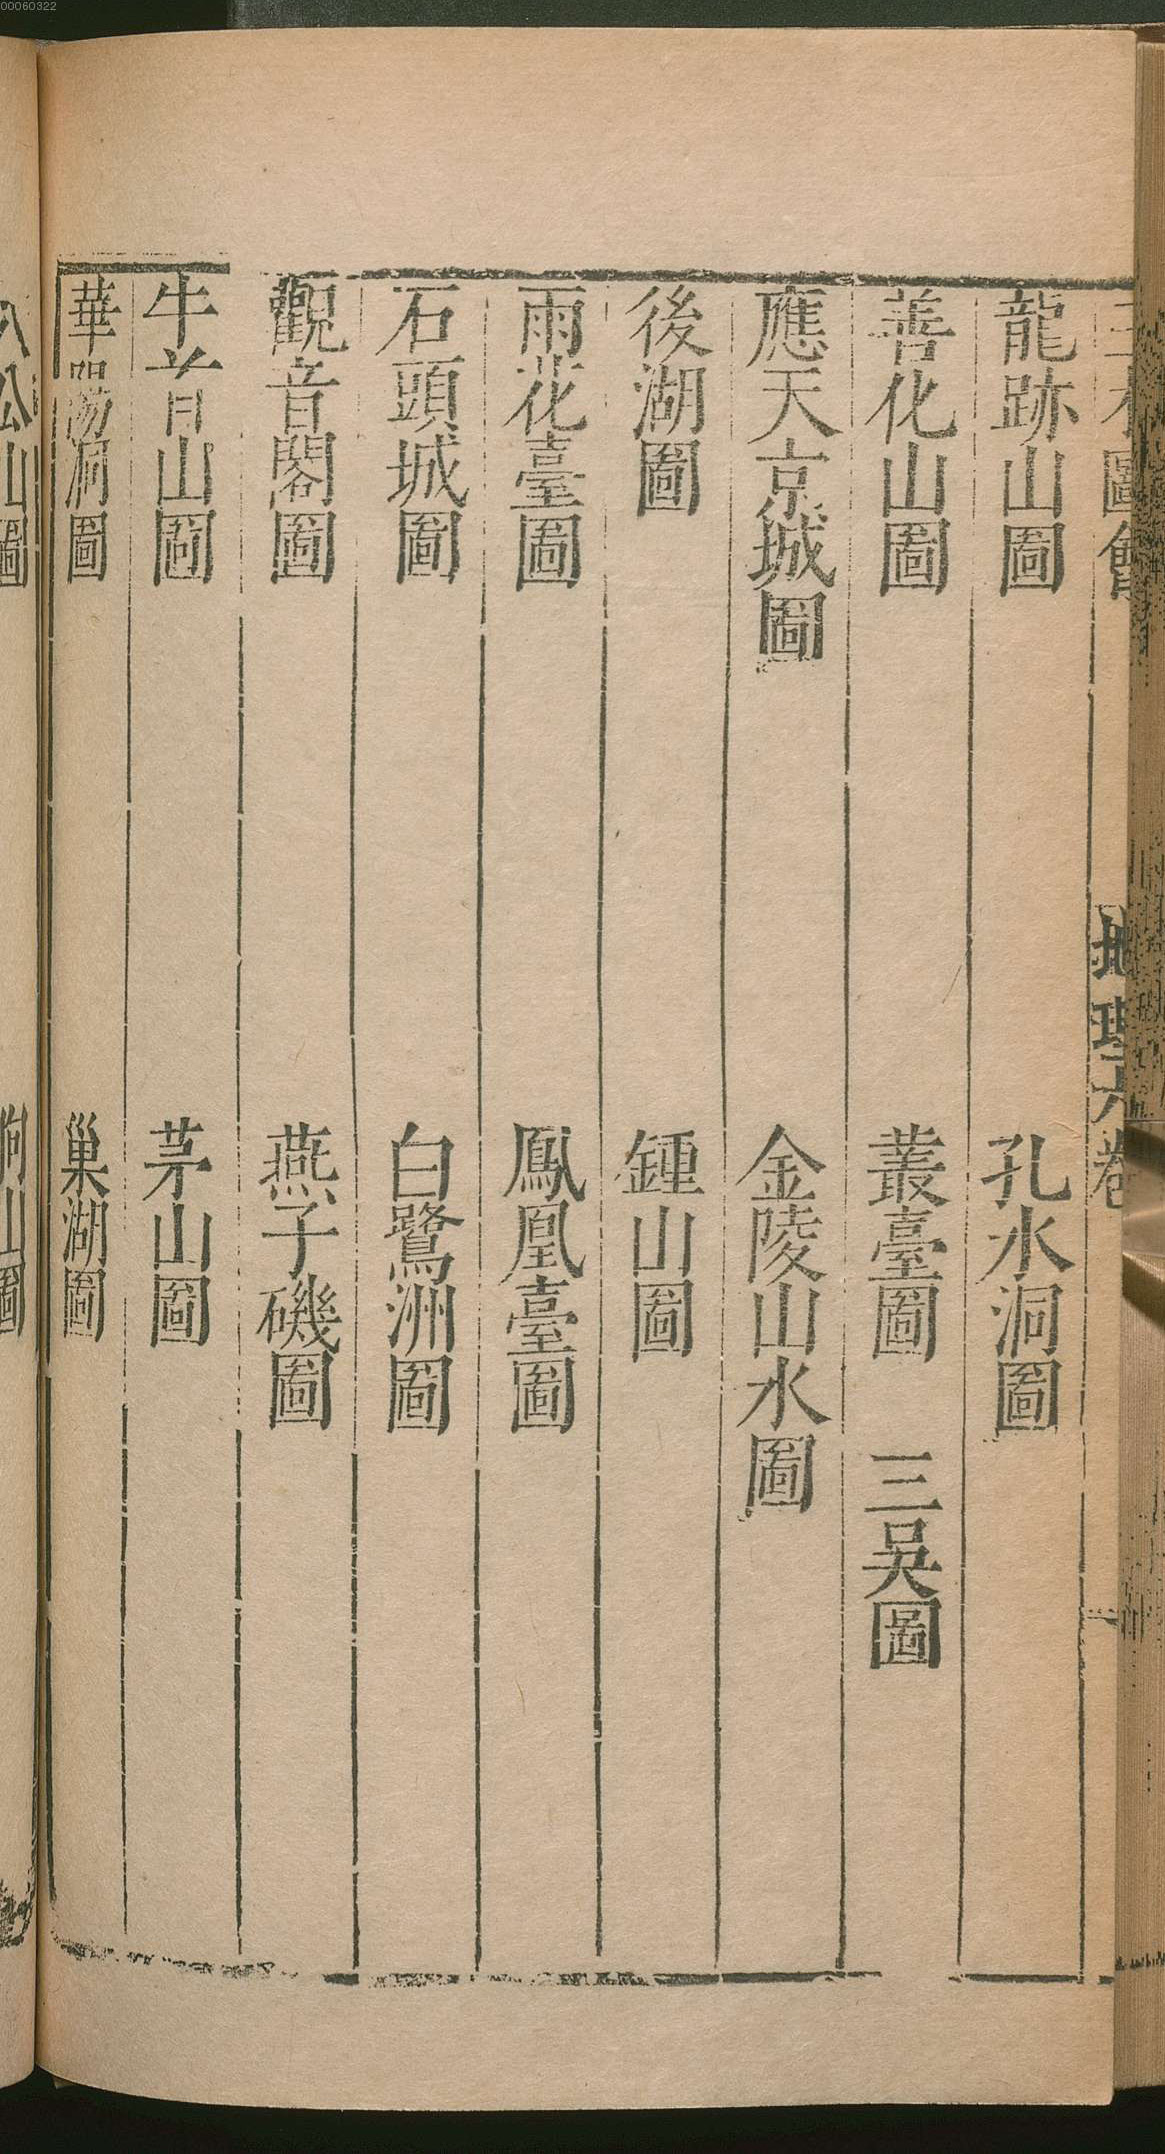 00060322
三才圖會
地理六卷
龍跡山圖 孔水洞圖
善化山圖 叢臺圖 三吳圖
應天京城圖 金陵山水圖
後湖圖 鍾山圖
雨花臺圖 鳳凰臺圖
石頭城圖 白鷺洲圖
觀音閣圖 燕子磯圖
牛首山圖 茅山圖
華陽洞圖 巢湖圖
八公山圖 山圖